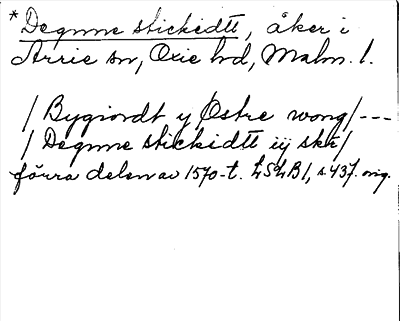 *Degnne stickidtt, åker i
Arrie sn, Oxie hd, Malm. l.
/Bygiordt y Østre wong/---
/Degnne stickidtt iij skr/
förra delen av 1570-t. LSLB1, s. 437. orig.